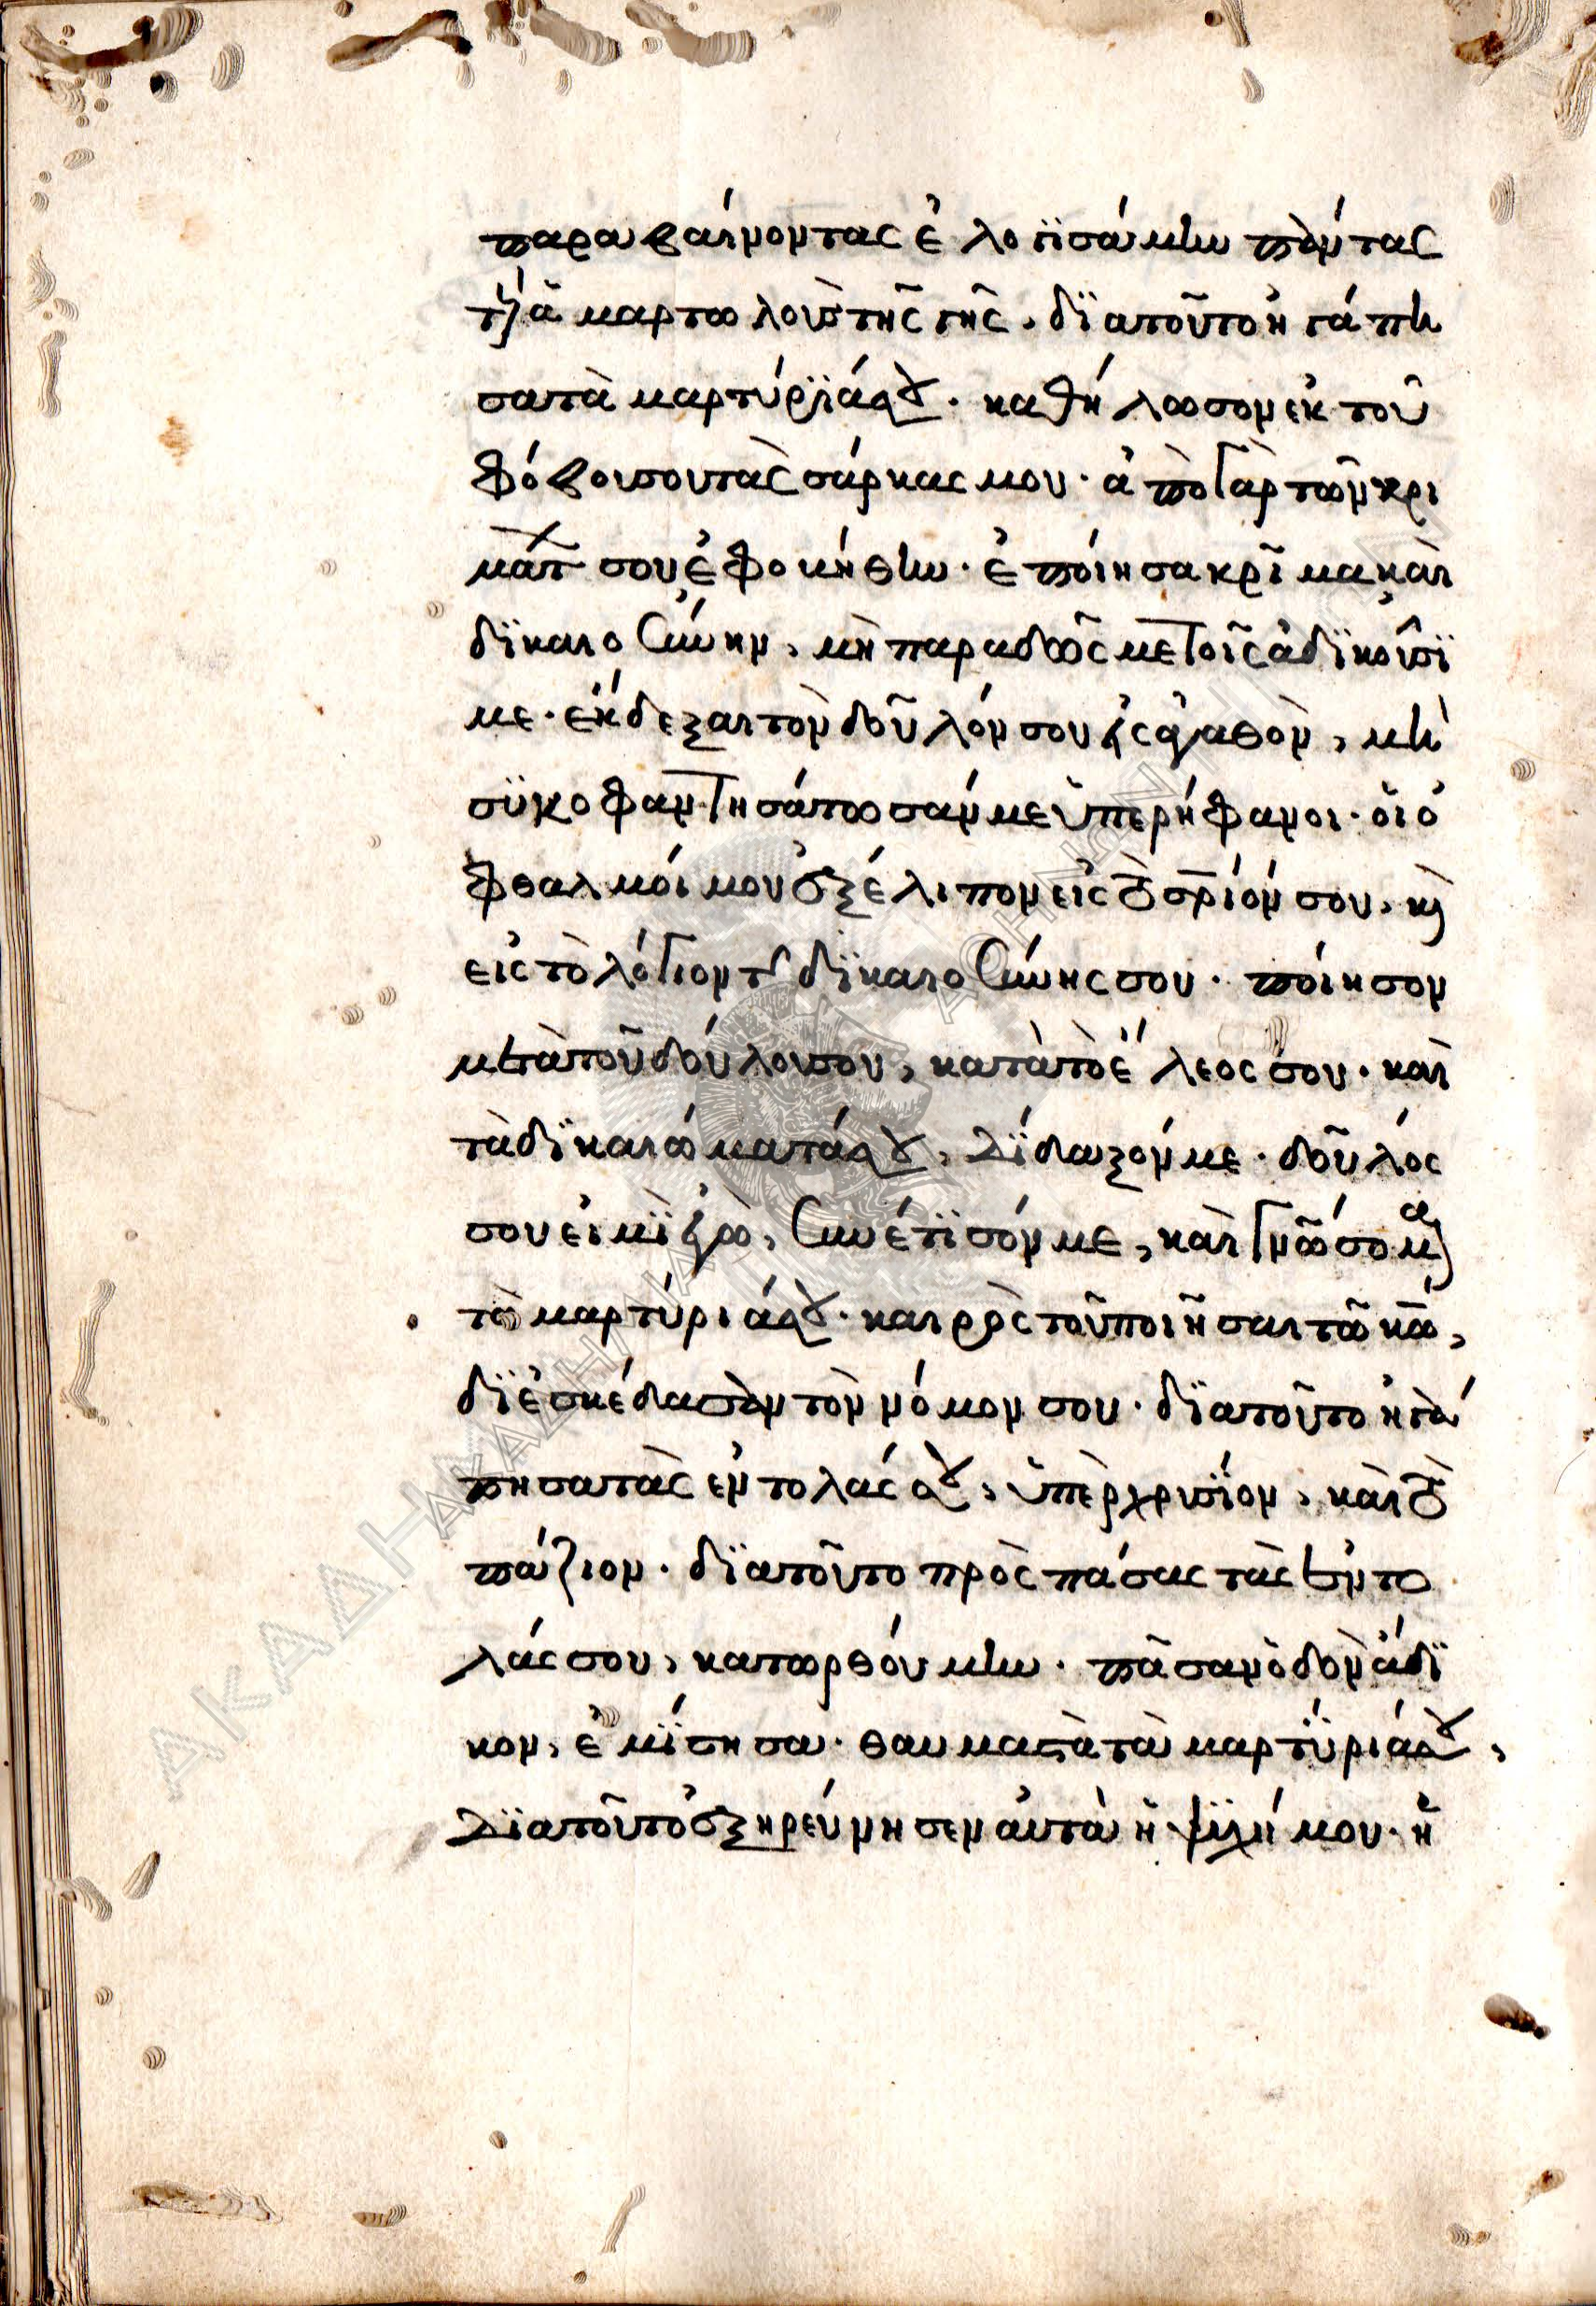 παραβαίνοντας ἐλογισάμην πάντας
τοὺς ἁμαρτωλοὺς τῆς γῆς. διατοῦτο ἠγάπη
σα τὰ μαρτύριά σου. καθήλωσον ἐκ τοῦ
φόβου σου τὰς σάρκας μου. ἀπὸ γὰρ τῶν κρι
μάτ σου ἐφοβήθην. ἐποίησα κρῖμα καὶ
δικαιοσύνην, μὴ παραδῶς με τοῖς ἀδικοῦσί
με. ἔκδεξαι τὸν δοῦλόν σου εἰς ἀγαθὸν, μὴ
συκοφαντησάτωσάν με ὑπερήφανοι. οἱ ὀ
φθαλμοί μου ἐξέλιπον εἰς τὸ σριόν σου, καὶ
εἰς τὸ λόγιον τῆς δικαιοσύνης σου. ποίησον
μετὰ τοῦ δούλου σου, κατὰ τὸ ἔλεος σου. καὶ
τὰ δικαιώματά σου, δίδαξόν με. δοῦλός
σου εἰμὶ ἐγὼ, συνέτισόν με, καὶ γνώσομαι
τὰ μαρτύριά σου. καιρὸς τοῦ ποιῆσαι τῶ κω,
διεσκέδασαν τὸν νόμον σου. διατοῦτο ἠγά
πησα τὰς ἐντολάς σου, ὑπὲρ χρυσίον, καὶ το
πάζιον. διατοῦτο πρὸς πάσας τὰς ἐντο
λάς σου, κατωρθούμην. πᾶσαν ὁδὸν ἄδι
κον, ἐμίσησα. θαυμαστὰ τὰ μαρτύριά σου,
διατοῦτο ἐξηρεύνησεν αὐτὰ ἡ ψυχή μου. ἡ
ΑΚΑΔΗΜΙΑ
ΑΘΗΝΩΝ